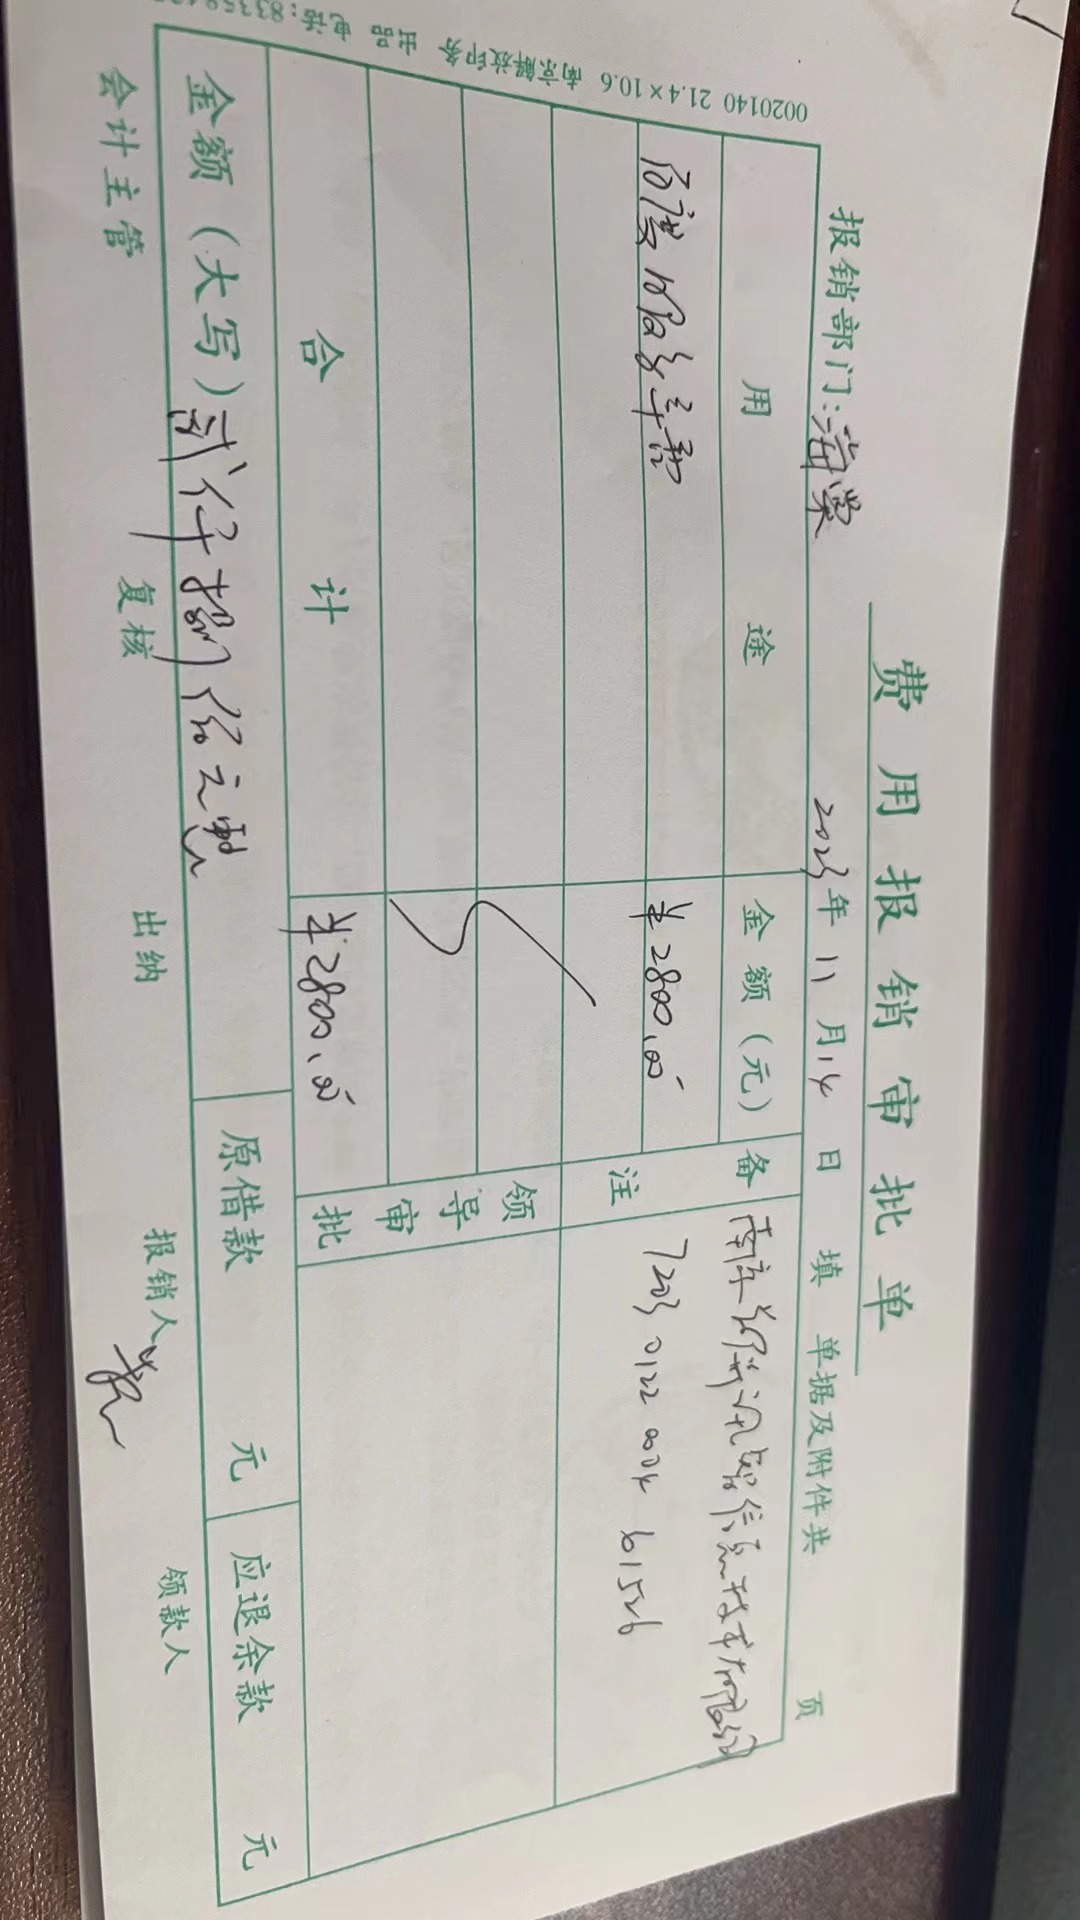 费用报销审批单
报销部门:海棠 2023年11月14日填 单据及附件共 页
用途 金额(元) 备注
百度服务年费 ¥2800.00
7203 0122 0004 61526
领导审批
合计 ¥2800.00
金额(大写)贰仟捌佰元整 原借款 元 应退余款 元
会计主管 复核 出纳 报销人 领款人
0020140 21.4×10.6 南京解放印务 出品 电话: